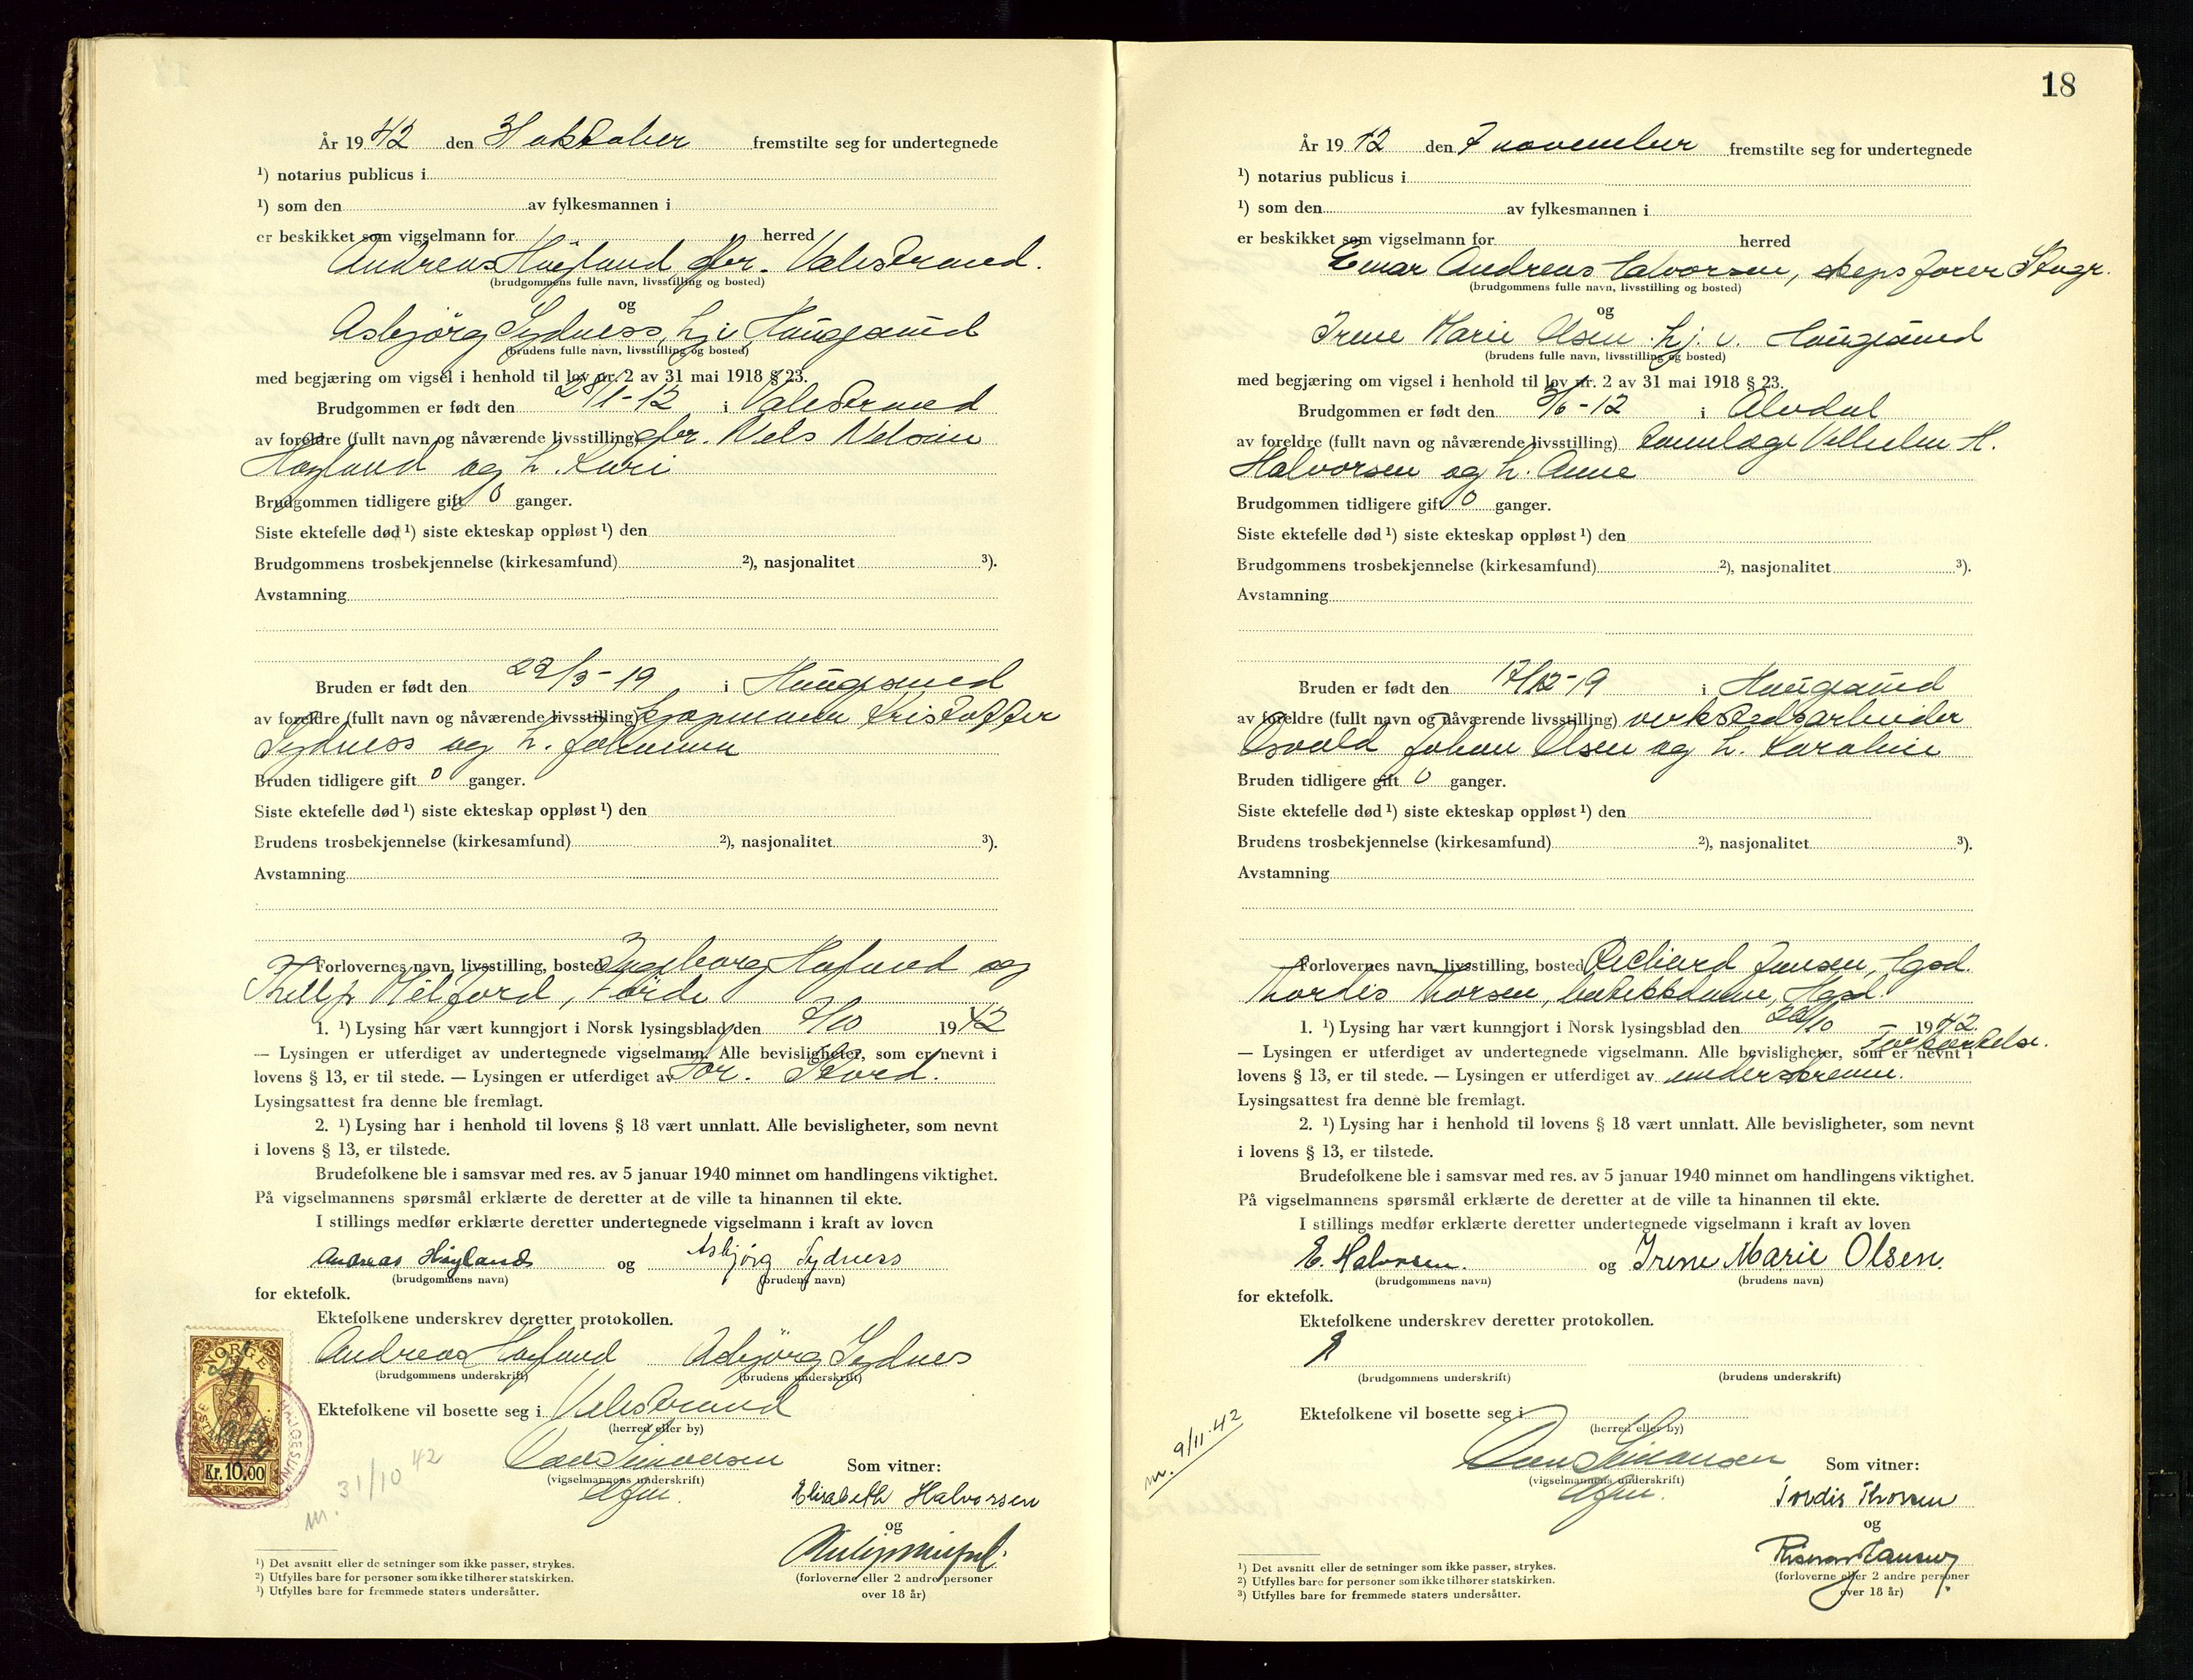 År 19 42 den 31 oktober fremstilte seg for undertegnede
¹) notarius publicus i
¹) som den av fylkesmannen i
er beskikket som vigselmann for herred
Andreas Høyland, gbr. Valestrand.
(brudgommens fulle navn, livsstilling og bosted)
og
Asbjörg Sydness, hj. i Haugesund
(brudens fulle navn, livsstilling og bosted)
med begjæring om vigsel i henhold til lov nr. 2 av 31 mai 1918 § 23.
Brudgommen er født den 28/1-12 i Valestrand
av foreldre (fullt navn og nåværende livsstilling) gbr. Nels Nelson
Høyland og h. Kari
Brudgommen tidligere gift 0 ganger.
Siste ektefelle død ¹) siste ekteskap oppløst ¹) den
Brudgommens trosbekjennelse (kirkesamfund) ²), nasjonalitet ³).
Avstamning
Bruden er født den 22/3-19 i Haugesund
av foreldre (fullt navn og nåværende livsstilling) kjøpmann Kristoffer
Sydness og h. Johanna
Bruden tidligere gift 0 ganger.
Siste ektefelle død ¹) siste ekteskap oppløst ¹) den
Brudens trosbekjennelse (kirkesamfund) ²), nasjonalitet ³).
Avstamning
Forlovernes navn, livsstilling, bosted Ingeborg og
Förde
1. ¹) Lysing har vært kunngjort i Norsk lysingsblad den 7/10 19 42
— Lysingen er utferdiget av undertegnede vigselmann. Alle bevisligheter, som er nevnt i
lovens § 13, er til stede. — Lysingen er utferdiget av Stord.
Lysingsattest fra denne ble fremlagt.
2. ¹) Lysing har i henhold til lovens § 18 vært unnlatt. Alle bevisligheter, som nevnt
i lovens § 13, er tilstede.
Brudefolkene ble i samsvar med res. av 5 januar 1940 minnet om handlingens viktighet.
På vigselmannens spørsmål erklærte de deretter at de ville ta hinannen til ekte.
I stillings medfør erklærte deretter undertegnede vigselmann i kraft av loven
Andreas Høyland og Asbjörg Sydness
(brudgommens navn) (brudens navn)
for ektefolk.
Ektefolkene underskrev deretter protokollen.
Andreas Høyland Asbjörg Sydnes
(brudgommens underskrift) (brudens underskrift)
Ektefolkene vil bosette seg i Valestrand
(herred eller by)
Simonsen
(vigselmannens underskrift)
Som vitner:
Elisabeth Halvorsen
og
(forloverne eller 2 andre personer
over 18 år)
NORGE
Kr. 10,00
HAUGESUND
m. 31/10 42
¹) Det avsnitt eller de setninger som ikke passer, strykes.
²) Utfylles bare for personer som ikke tilhører statskirken.
³) Utfylles bare for fremmede staters undersåtter.
18
År 19 42 den 7 november fremstilte seg for undertegnede
¹) notarius publicus i
¹) som den av fylkesmannen i
er beskikket som vigselmann for herred
Einar Andreas Halvorsen, skepsfører
(brudgommens fulle navn, livsstilling og bosted)
og
Irene Marie Olsen hj. v. Haugesund
(brudens fulle navn, livsstilling og bosted)
med begjæring om vigsel i henhold til lov nr. 2 av 31 mai 1918 § 23.
Brudgommen er født den 3/6-12 i Alvdal
av foreldre (fullt navn og nåværende livsstilling) tannlæge Vilhelm H.
Halvorsen og h. Anne
Brudgommen tidligere gift 0 ganger.
Siste ektefelle død ¹) siste ekteskap oppløst ¹) den
Brudgommens trosbekjennelse (kirkesamfund) ²), nasjonalitet ³).
Avstamning
Bruden er født den 17/12-19 i Haugesund
av foreldre (fullt navn og nåværende livsstilling) verkstedsarbeider
Osvald Johan Olsen og h. Karoline
Bruden tidligere gift 0 ganger.
Siste ektefelle død ¹) siste ekteskap oppløst ¹) den
Brudens trosbekjennelse (kirkesamfund) ²), nasjonalitet ³).
Avstamning
Forlovernes navn, livsstilling, bosted Richard Jansen, Hgsd.
Tordis Thorsen, butikkdame, Hgsd.
1. ¹) Lysing har vært kunngjort i Norsk lysingsblad den 22/10 — 19 42.
— Lysingen er utferdiget av undertegnede vigselmann. Alle bevisligheter, som er nevnt i
lovens § 13, er til stede. — Lysingen er utferdiget av
Lysingsattest fra denne ble fremlagt.
2. ¹) Lysing har i henhold til lovens § 18 vært unnlatt. Alle bevisligheter, som nevnt
i lovens § 13, er tilstede.
Brudefolkene ble i samsvar med res. av 5 januar 1940 minnet om handlingens viktighet.
På vigselmannens spørsmål erklærte de deretter at de ville ta hinannen til ekte.
I stillings medfør erklærte deretter undertegnede vigselmann i kraft av loven
E. Halvorsen. og Irene Marie Olsen.
(brudgommens navn) (brudens navn)
for ektefolk.
Ektefolkene underskrev deretter protokollen.
(brudgommens underskrift) (brudens underskrift)
Ektefolkene vil bosette seg i
(herred eller by)
m. 9/11.42
Simonsen
(vigselmannens underskrift)
Som vitner:
Tordis Thorsen
og
(forloverne eller 2 andre personer
over 18 år)
¹) Det avsnitt eller de setninger som ikke passer, strykes.
²) Utfylles bare for personer som ikke tilhører statskirken.
³) Utfylles bare for fremmede staters undersåtter.